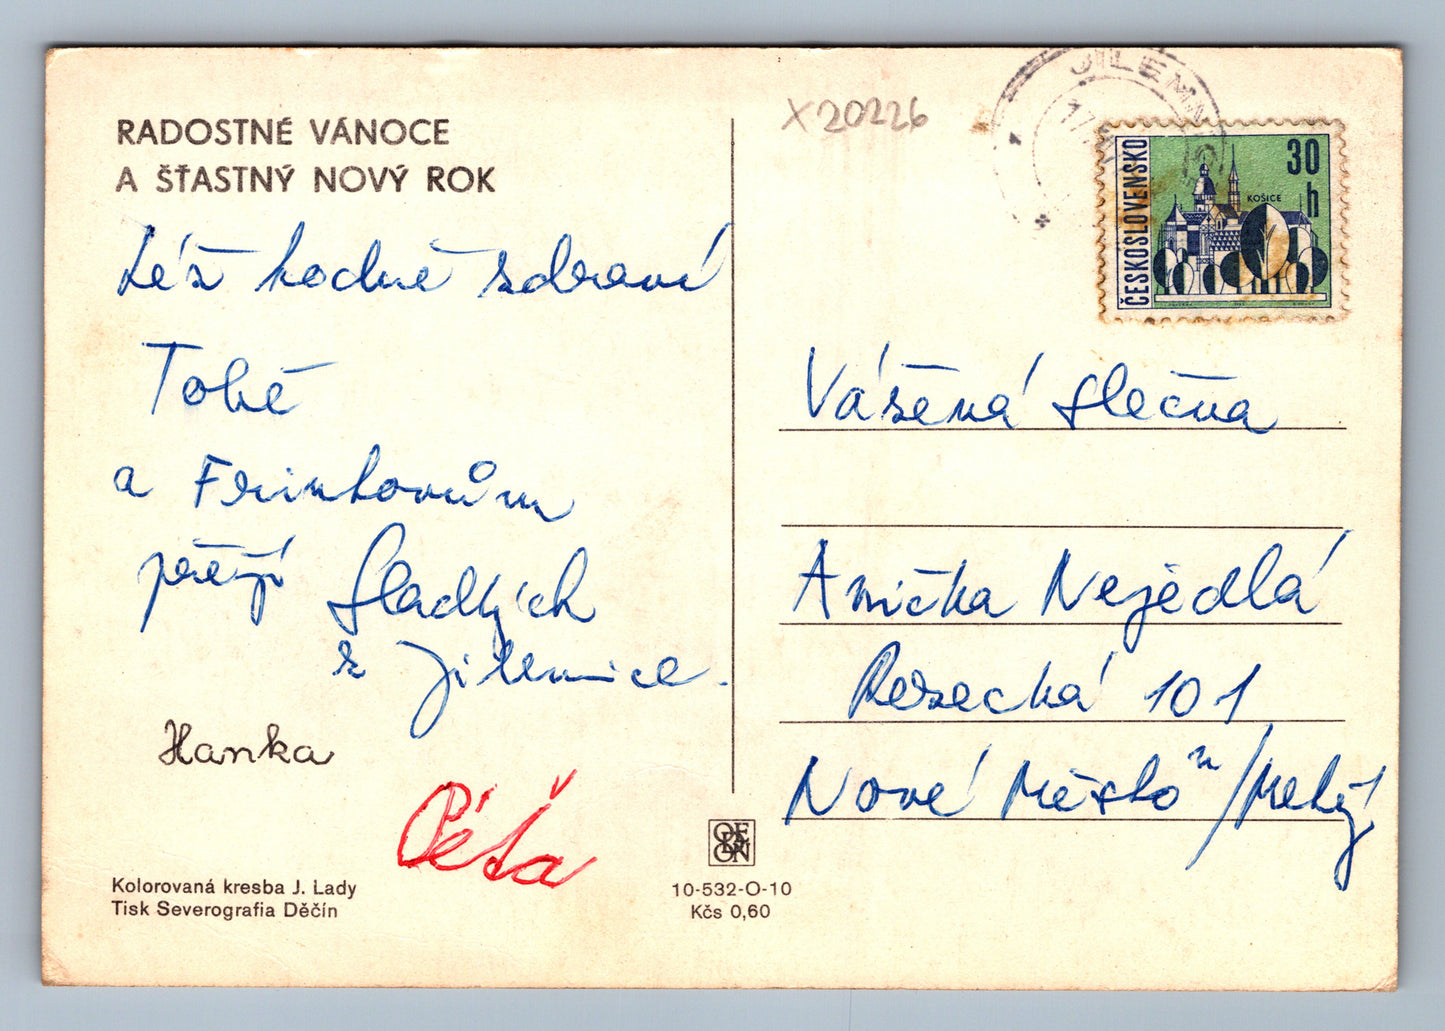 RADOSTNÉ VÁNOCE
A ŠŤASTNÝ NOVÝ ROK
Též hodně zdraví
Tobě
a Frinkovům
přejí Sladkých
z Jilemnice.
Hanka
Péťa
Kolorovaná kresba J. Lady
Tisk Severografia Děčín
ORBIS
10-532-O-10
Kčs 0,60
X20226
JILEMN
17
ČESKOSLOVENSKO
30
h
KOŠICE
Vážená slečna
Anička Nejedlá
Rezecká 101
Nové Město n/Metují